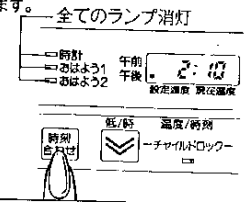 ます。
全てのランプ消灯
時計
おはよう1
おはよう2
午前
午後
2:10
設定温度 現在温度
低/時
温度/時刻
時刻
合わせ
チャイルドロック